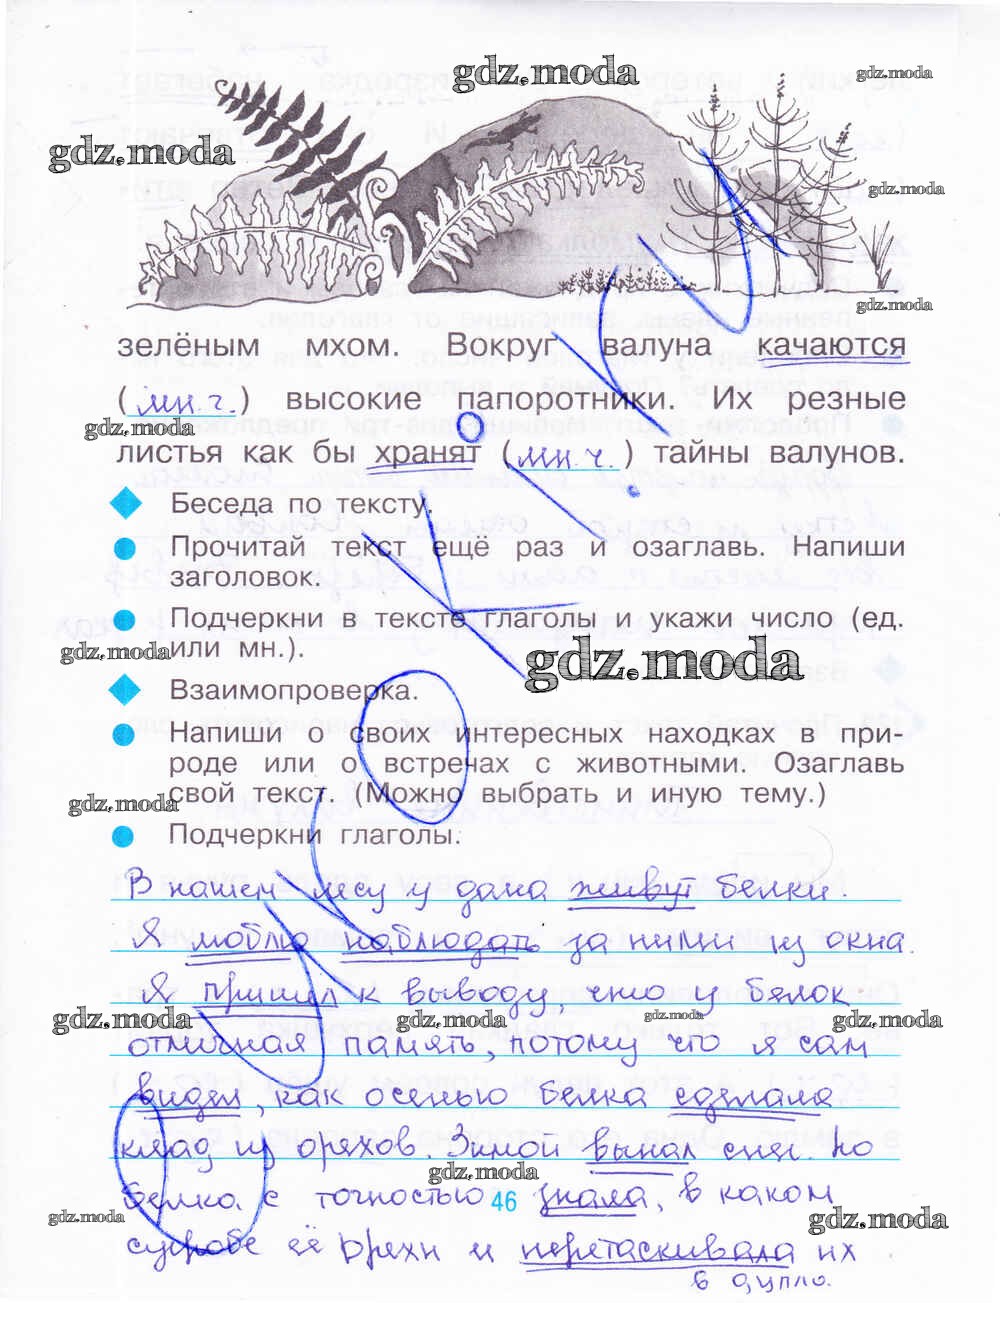 gdz.moda
gdz.moda
gdz.moda
gdz.moda
gdz.moda
зелёным мхом. Вокруг валуна качаются
(мн.ч.) высокие папоротники. Их резные
gdz.moda
листья как бы хранят (мн.ч.) тайны валунов.
Беседа по тексту.
Прочитай текст ещё раз и озаглавь. Напиши
заголовок.
Подчеркни в тексте глаголы и укажи число (ед.
или мн.).
gdz.moda
gdz.moda
Взаимопроверка.
Напиши о своих интересных находках в при-
роде или о встречах с животными. Озаглавь
свой текст. (Можно выбрать и иную тему.)
gdz.moda
Подчеркни глаголы.
В нашем лесу у дома живут белки.
Я люблю наблюдать за ними из окна.
Я пришел к выводу, что у белок
gdz.moda
gdz.moda
gdz.moda
gdz.moda
отличная память, потому что я сам
видел, как осенью белка сделала
клад из орехов. Зимой выпал снег. Но
gdz.moda
белка с точностью знала, в каком
46
gdz.moda
gdz.moda
сугробе её орехи и перетаскивала их
в дупло.